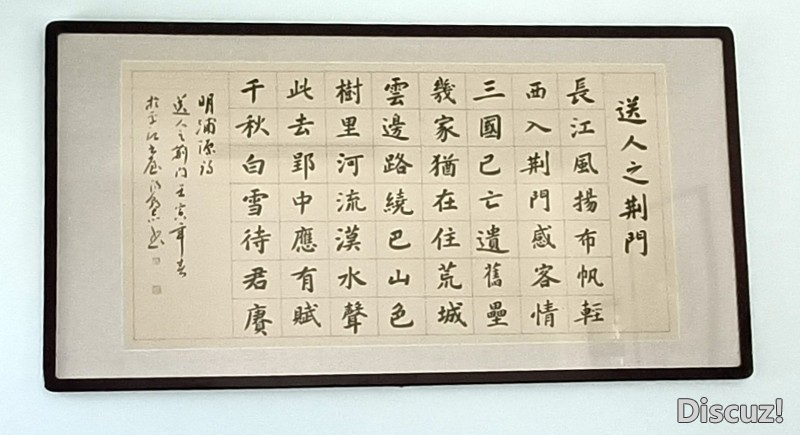 送人之荆門
長江風揚布帆輕
西入荆門感客情
三國已亡遺舊壘
幾家猶在住荒城
雲邊路繞巴山色
樹里河流漢水聲
此去郢中應有賦
千秋白雪待君賡
明浦源詩
送人之荆門壬寅年春
Discuz!